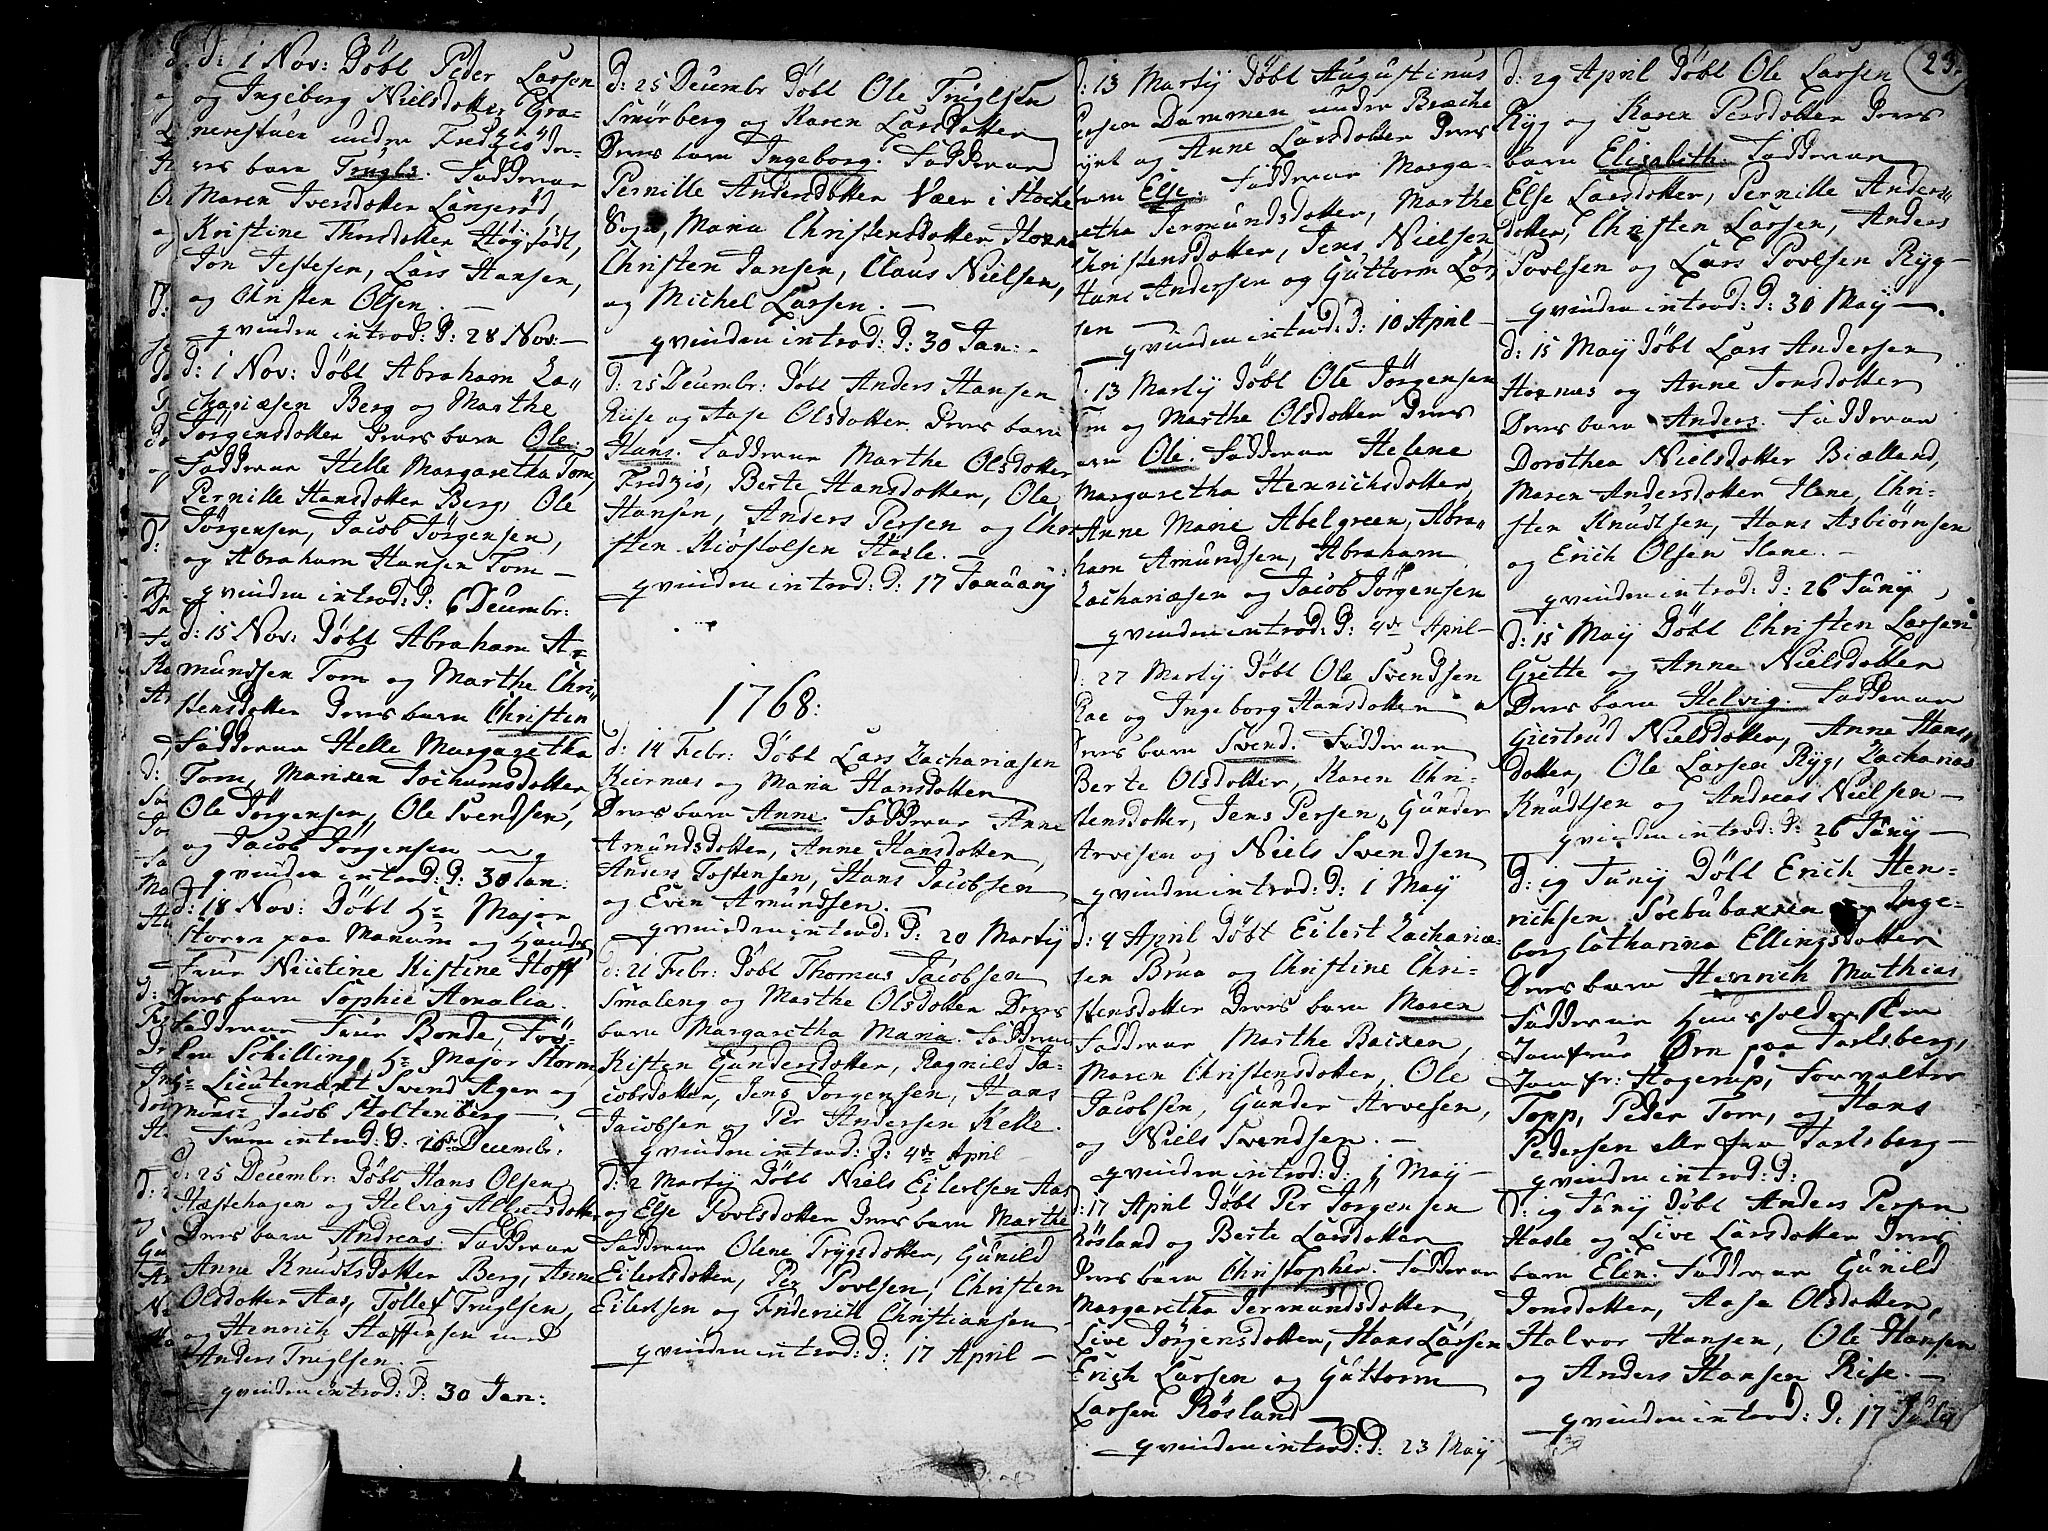 d: 1 Nov: Döbt Peder Larsen
og Ingeborg Nielsdotter Gra-
nerestuen under Fredgiö De-
res barn Trugls. Fadderne
Maren Iversdotter Langeröd,
Kristine Thordotter Höyfödt,
Jon Jestesen, Lars Hansen,
og Christen Olsen. —
qvinden introd: d: 28 Nov: —
d: 1 Nov: Döbt Abraham Za-
chariæsen Berg og Marthe
Jörgensdotter Deres barn Ole.
Fadderne Helle Margaretha Tom,
Pernille Hansdotter Berg, Ole
Jörgensen, Jacob Jörgensen,
og Abraham Hansen Tom —
qvinden introd: d: 6 Decembr:
d: 15 Nov: Döbt Abraham A-
mundsen Tom og Marthe Chri-
stensdotter Deres barn Christen
Fadderne Helle Margaretha
Tom, Marixen Jochumsdotter,
Ole Jörgensen, Ole Svendsen,
og Jacob Jörgensen —
qvinden introd: d: 30 Jan:
d: 18 Nov: Döbt Hr Major
Storm paa Manum og Hands
Frue Kistine Hoff
Deres barn Sophie Amalia.
Fadderne Frue Bonde, Frö-
ken Schilling, Hr Major Storm,
Hr Lieutenant Svend Ager og
Mons: Jacob Stoltenberg —
Fruen introd: d: 16 Decembr:
d: 25 Decembr: Döbt Hans Olsen
Hæstehagen og Helvig Albretsdotter
Deres barn Andreas. Fadderne
Anne Knudtsdotter Berg, Anne
Olsdotter Aas, Tollef Truglsen,
og Henrich Staffensen med
Anders Truglsen. —
qvinden introd: d: 30 Jan:
d: 25 Decembr Döbt Ole Truglsen
Smörberg og Karen Larsdotter
Deres barn Ingeborg. Fadderne
Pernille Andersdotter Vær i Hoche
Sogn, Maria Christensdotter Hornes
Christen Jansen, Claus Nielsen,
og Michel Larsen. —
qvinden introd: d: 30 Jan: —
d: 25 Decembr: Döbt Anders Hansen
Riise og Aase Olsdotter Deres barn
Hans. Fadderne Marthe Olsdotter
Fredgiö, Berte Hansdotter, Ole
Hansen, Anders Persen og Chri-
sten Kiöstolsen Hasle. —
qvinden introd: d: 17 January
1768:
d: 14 Febr: Döbt Lars Zachariæsen
Kiernæs og Maria Hansdotter
Deres barn Anne Fadderne Anne
Amundsdotter, Anne Hansdotter,
Anders Tostensen, Hans Jacobsen
og Even Amundsen.
qvinden introd: d: 20 Martij
d: 21 Febr: Döbt Thomas Jacobsen
Smaleng og Marthe Olsdotter Deres
barn Margaretha Maria. Fadderne
Kisten Gundersdotter, Ragnild Ja-
cobsdotter, Jens Jörgensen, Hans
Jacobsen og Per Andersen Kelle.
qvinden introd: d: 4de April
d: 2 Martij Döbt Niels Eilertsen Aas
og Else Povlsdotter Deres barn Marthe
Fadderne Olene Trygsdotter, Gunild
Eilertsdotter, Per Povlsen, Christen
Eilertsen og Friderich Christiansen
qvinden introd: d: 17 April —
d: 13 Martij Döbt Augustinus
Persen Dammen under Bræche
og Anne Larsdotter Deres
barn Else. Fadderne Marga-
retha Jermundsdotter, Marthe
Christensdotter, Jens Nielsen
Hans Andersen og Guttorm Lar
sen —
qvinden introd: d: 10 April —
d. 13 Martij Döbt Ole Jörgensen
Tom og Marthe Olsdotter Deres
barn Ole. Fadderne Helene
Margaretha Henrichsdotter,
Anne Marie Abelgreen, Abra-
ham Amundsen, Abraham
Zachariæsen og Jacob Jörgensen
qvinden introd: d: 4de April —
d: 27 Martij Döbt Ole Svendsen
Rae og Ingeborg Hansdotter
Deres barn Svend. Fadderne
Berte Olsdotter, Karen Chri-
stensdotter, Jens Persen, Gunder
Arvesen og Niels Svendsen
qvinden introd: d: 1 May
d: 4 April Döbt Eilert Zachariæ-
sen Brua og Christine Chri-
stensdotter Deres barn Maren
Fadderne Marthe Baixen,
Maren Christensdotter, Ole
Jacobsen, Gunder Arvesen,
og Niels Svendsen. —
qvinden introd: d: 1 May —
d: 17 April Döbt Per Jörgensen
Rösland og Berte Larsdotter
Deres barn Christopher. Fadderne
Margaretha Jermundsdotter,
Live Jörgensdotter, Hans Larsen
Erich Larsen og Guttorm
Larsen Rösland —
qvinden introd: d: 23 May
23.
d: 29 April Döbt Ole Larsen
Ryg og Karen Persdotter Deres
barn Elisabeth. Fadderne
Else Larsdotter, Pernille Anders-
dotter, Christen Larsen, Anders
Povlsen og Lars Povlsen Ryg —
qvinden introd: d: 30 May —
d: 15 May Döbt Lars Andersen
Hornes og Anne Jonsdotter
Deres barn Anders. Fadderne
Dorothea Nielsdotter Biælland,
Maren Andersdotter Ilene, Chri-
sten Knudtsen, Hans Asbiörnsen
og Erich Olsen Ilene. —
qvinden introd: d: 26 Juny
d: 15 May Döbt Christen Larsen
Grette og Anne Nielsdotter
Deres barn Helvig. Fadderne
Giertrud Nielsdotter, Anne Hans-
dotter, Ole Larsen Ryg, Zacharias
Knudtsen og Andreas Nielsen —
qvinden introd: d: 26 Juny —
d: 19 Juny Döbt Erich Hen-
richsen Soebubaxen og Inge-
borg Catharina Ellingsdotter
Deres barn Henrich Mathias
Fadderne Huusholdersken
Jomfrue Örn paa Jarlsberg,
Jomfr: Hagerup, Forvalter
Topp, Peder Tom, og Hans
Pedersen alle fra Jarlsberg —
qvinden introd: d:
d: 19 Juny Döbt Anders Persen
Hasle og Live Larsdotter Deres
barn Elen. Fadderne Gunild
Jonsdotter, Aase Olsdotter,
Halvor Hansen, Ole Hansen
og Anders Hansen Rise. —
qvinden introd: d: 17 July